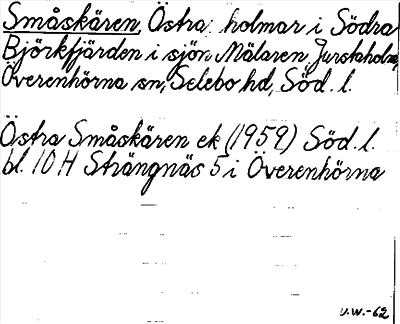 Småskären, Östra: holmar i Södra
Björkfjärden i sjön Mälaren, Jurstaholm,
Överenhörna sn, Selebo hd, Söd. l.
Östra Småskären ek (1959) Söd. l.
bl. 10 H Strängnäs 5 i Överenhörna
V.W.-62